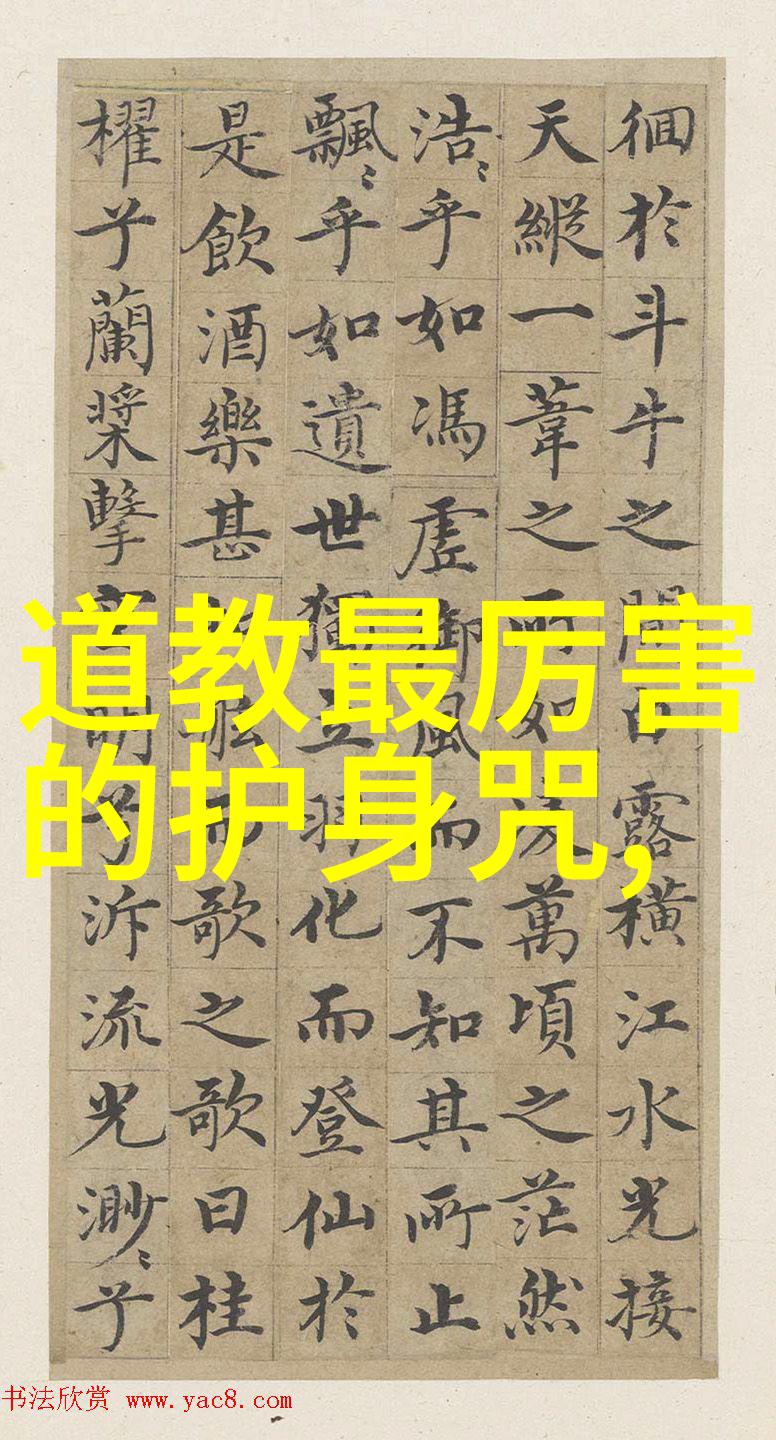 徊於斗牛之間白露橫江水光接
天縱一葦之所如凌萬頃之茫然
浩〻乎如馮虛御風而不知其所止
飄〻乎如遺世獨立羽化而登仙於
是飲酒樂甚扣舷而歌之歌曰桂
櫂兮蘭槳擊空明兮泝流光渺〻兮
道教最厉害
的护身咒,
书法欣赏 www.yac8.com